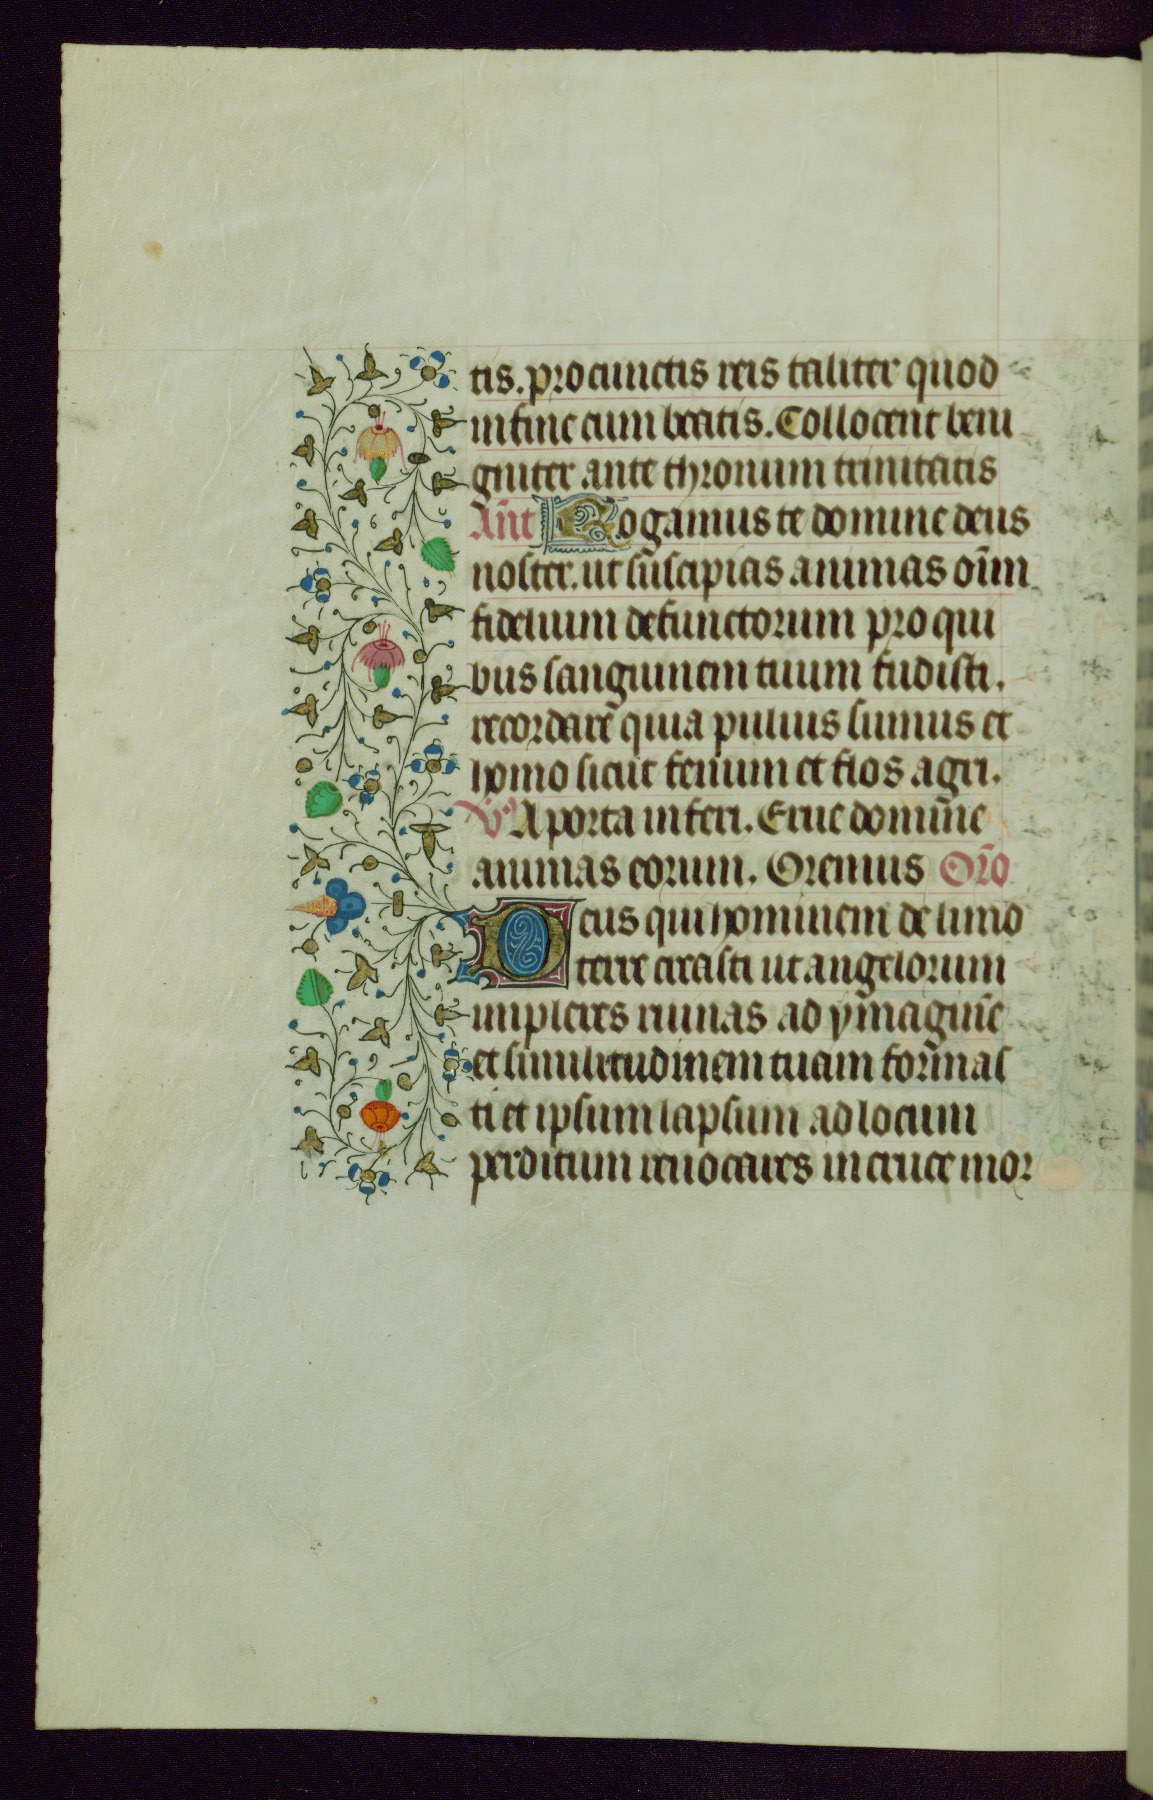 tis. pro cunctis reis taliter quod
in fine cum beatis. Collocent beni
gniter ante thronum trinitatis
Ant̄ Rogamus te domine deus
noster. ut suscipias animas oīm
fidelium defunctorum pro qui
bus sanguinem tuum fudisti.
recordare quia puluis sumus et
homo sicut fenum et flos agri.
V̄ A porta inferi. Erue domine
animas eorum. Oremus Orō
Deus qui hominem de limo
terre creasti ut angelorum
impleres ruinas ad ymaginē
et similitudinem tuam formas
ti et ipsum lapsum ad locum
perditum reuocares in cruce mor